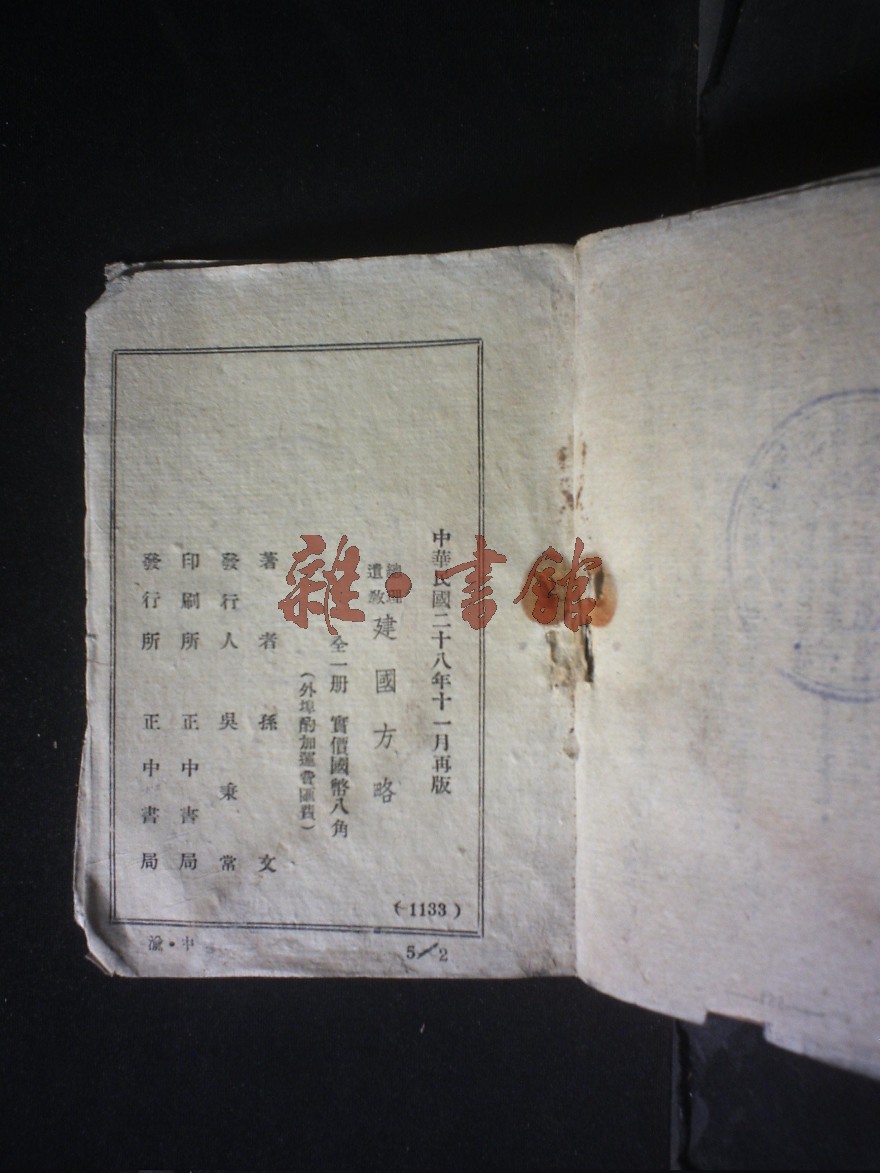 中華民國二十八年十一月再版
總理遺教 建國方略
全一册 實價國幣八角
(外埠酌加運費匯費)
著者 孫文
發行人 吳秉常
印刷所 正中書局
發行所 正中書局
(1133)
5/2
渝·中
雜·書館